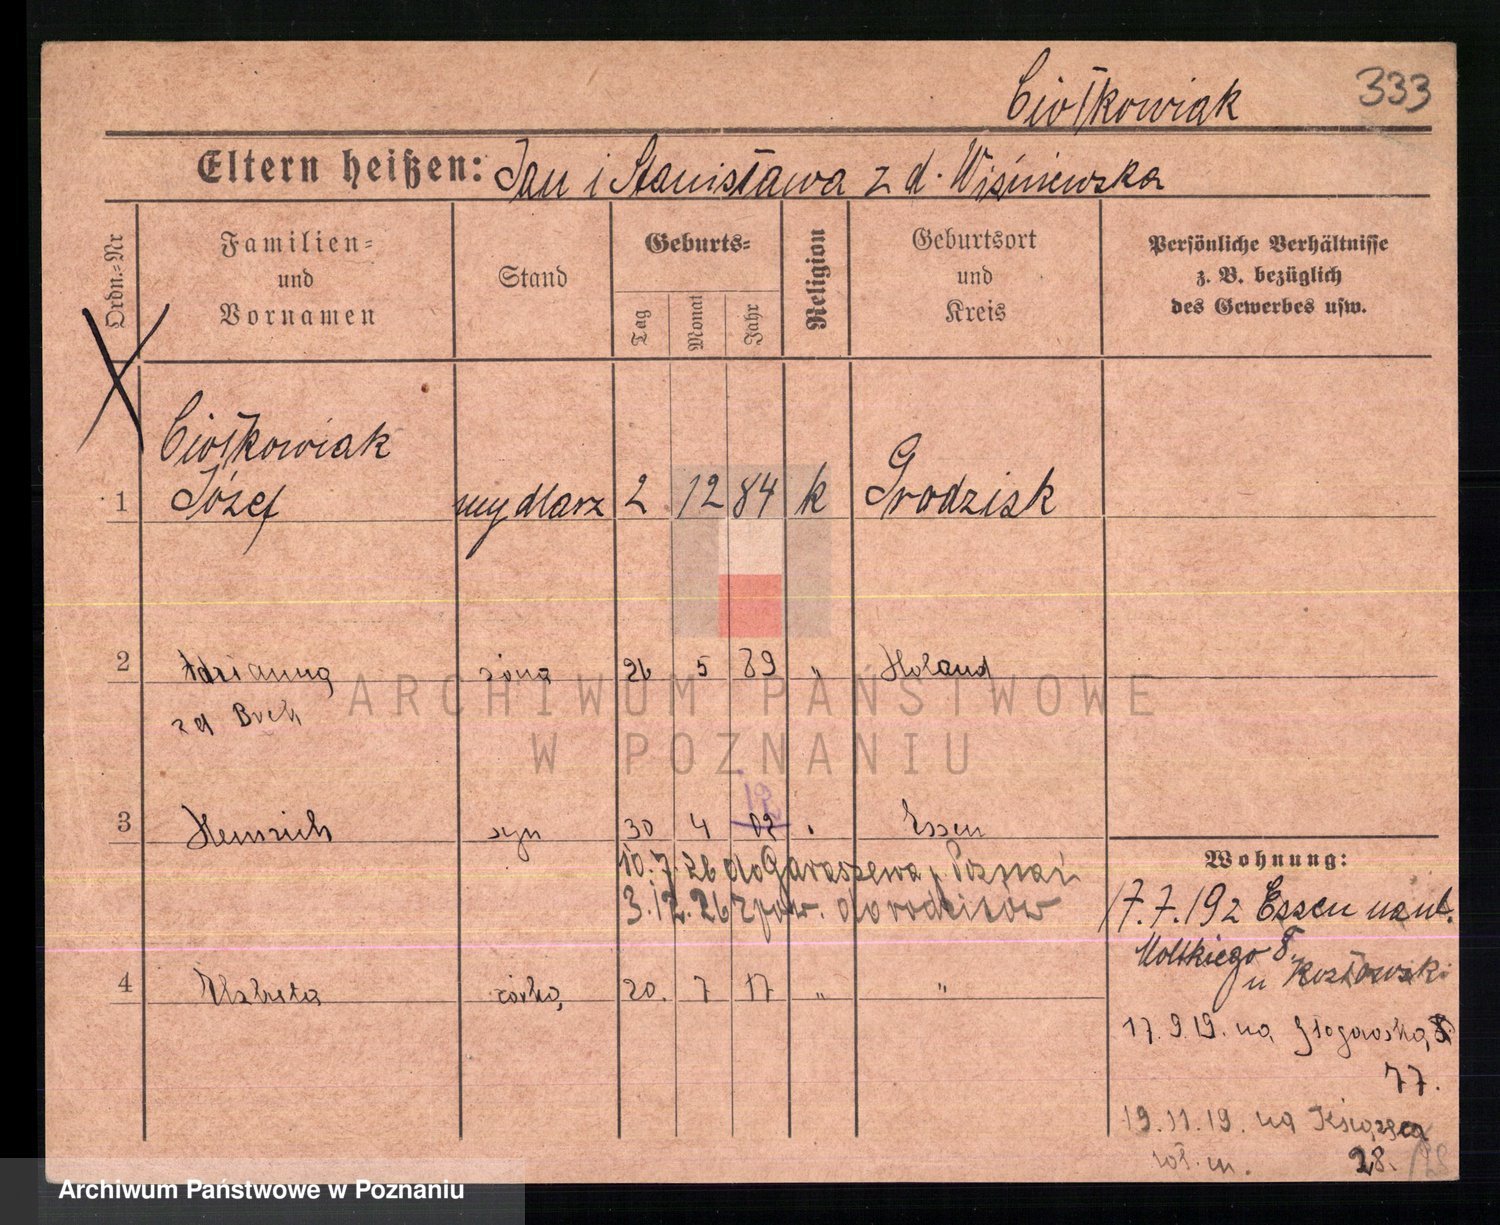 Ciołkowiak 333
Eltern heißen: Jan i Stanisława z d. Wiśniewska
Ordn.-Nr
Familien-
und
Vornamen
Stand
Geburts-
Tag
Monat
Jahr
Religion
Geburtsort
und
Kreis
Persönliche Verhältnisse
z. B. bezüglich
des Gewerbes usw.
Ciołkowiak
1 Józef mydlarz 2 12 84 k Grodzisk
2 Adrianna żona 26 5 89 „ Holand
zd
ARCHIWUM PAŃSTWOWE
W POZNANIU
3 Heinrich syn 30 4 02 Essen
10.7.26 do Garaszewa, Poznań
3.12.26 z pow. do rodziców
Wohnung:
17.7.19 z Essen na ul.
Moltkiego 8
u Kozłowski
4 Elzbieta córka 20. 7 17 „ „
17.9.19. na Głogowską
77.
19.11.19. na Książęca
28.
Archiwum Państwowe w Poznaniu